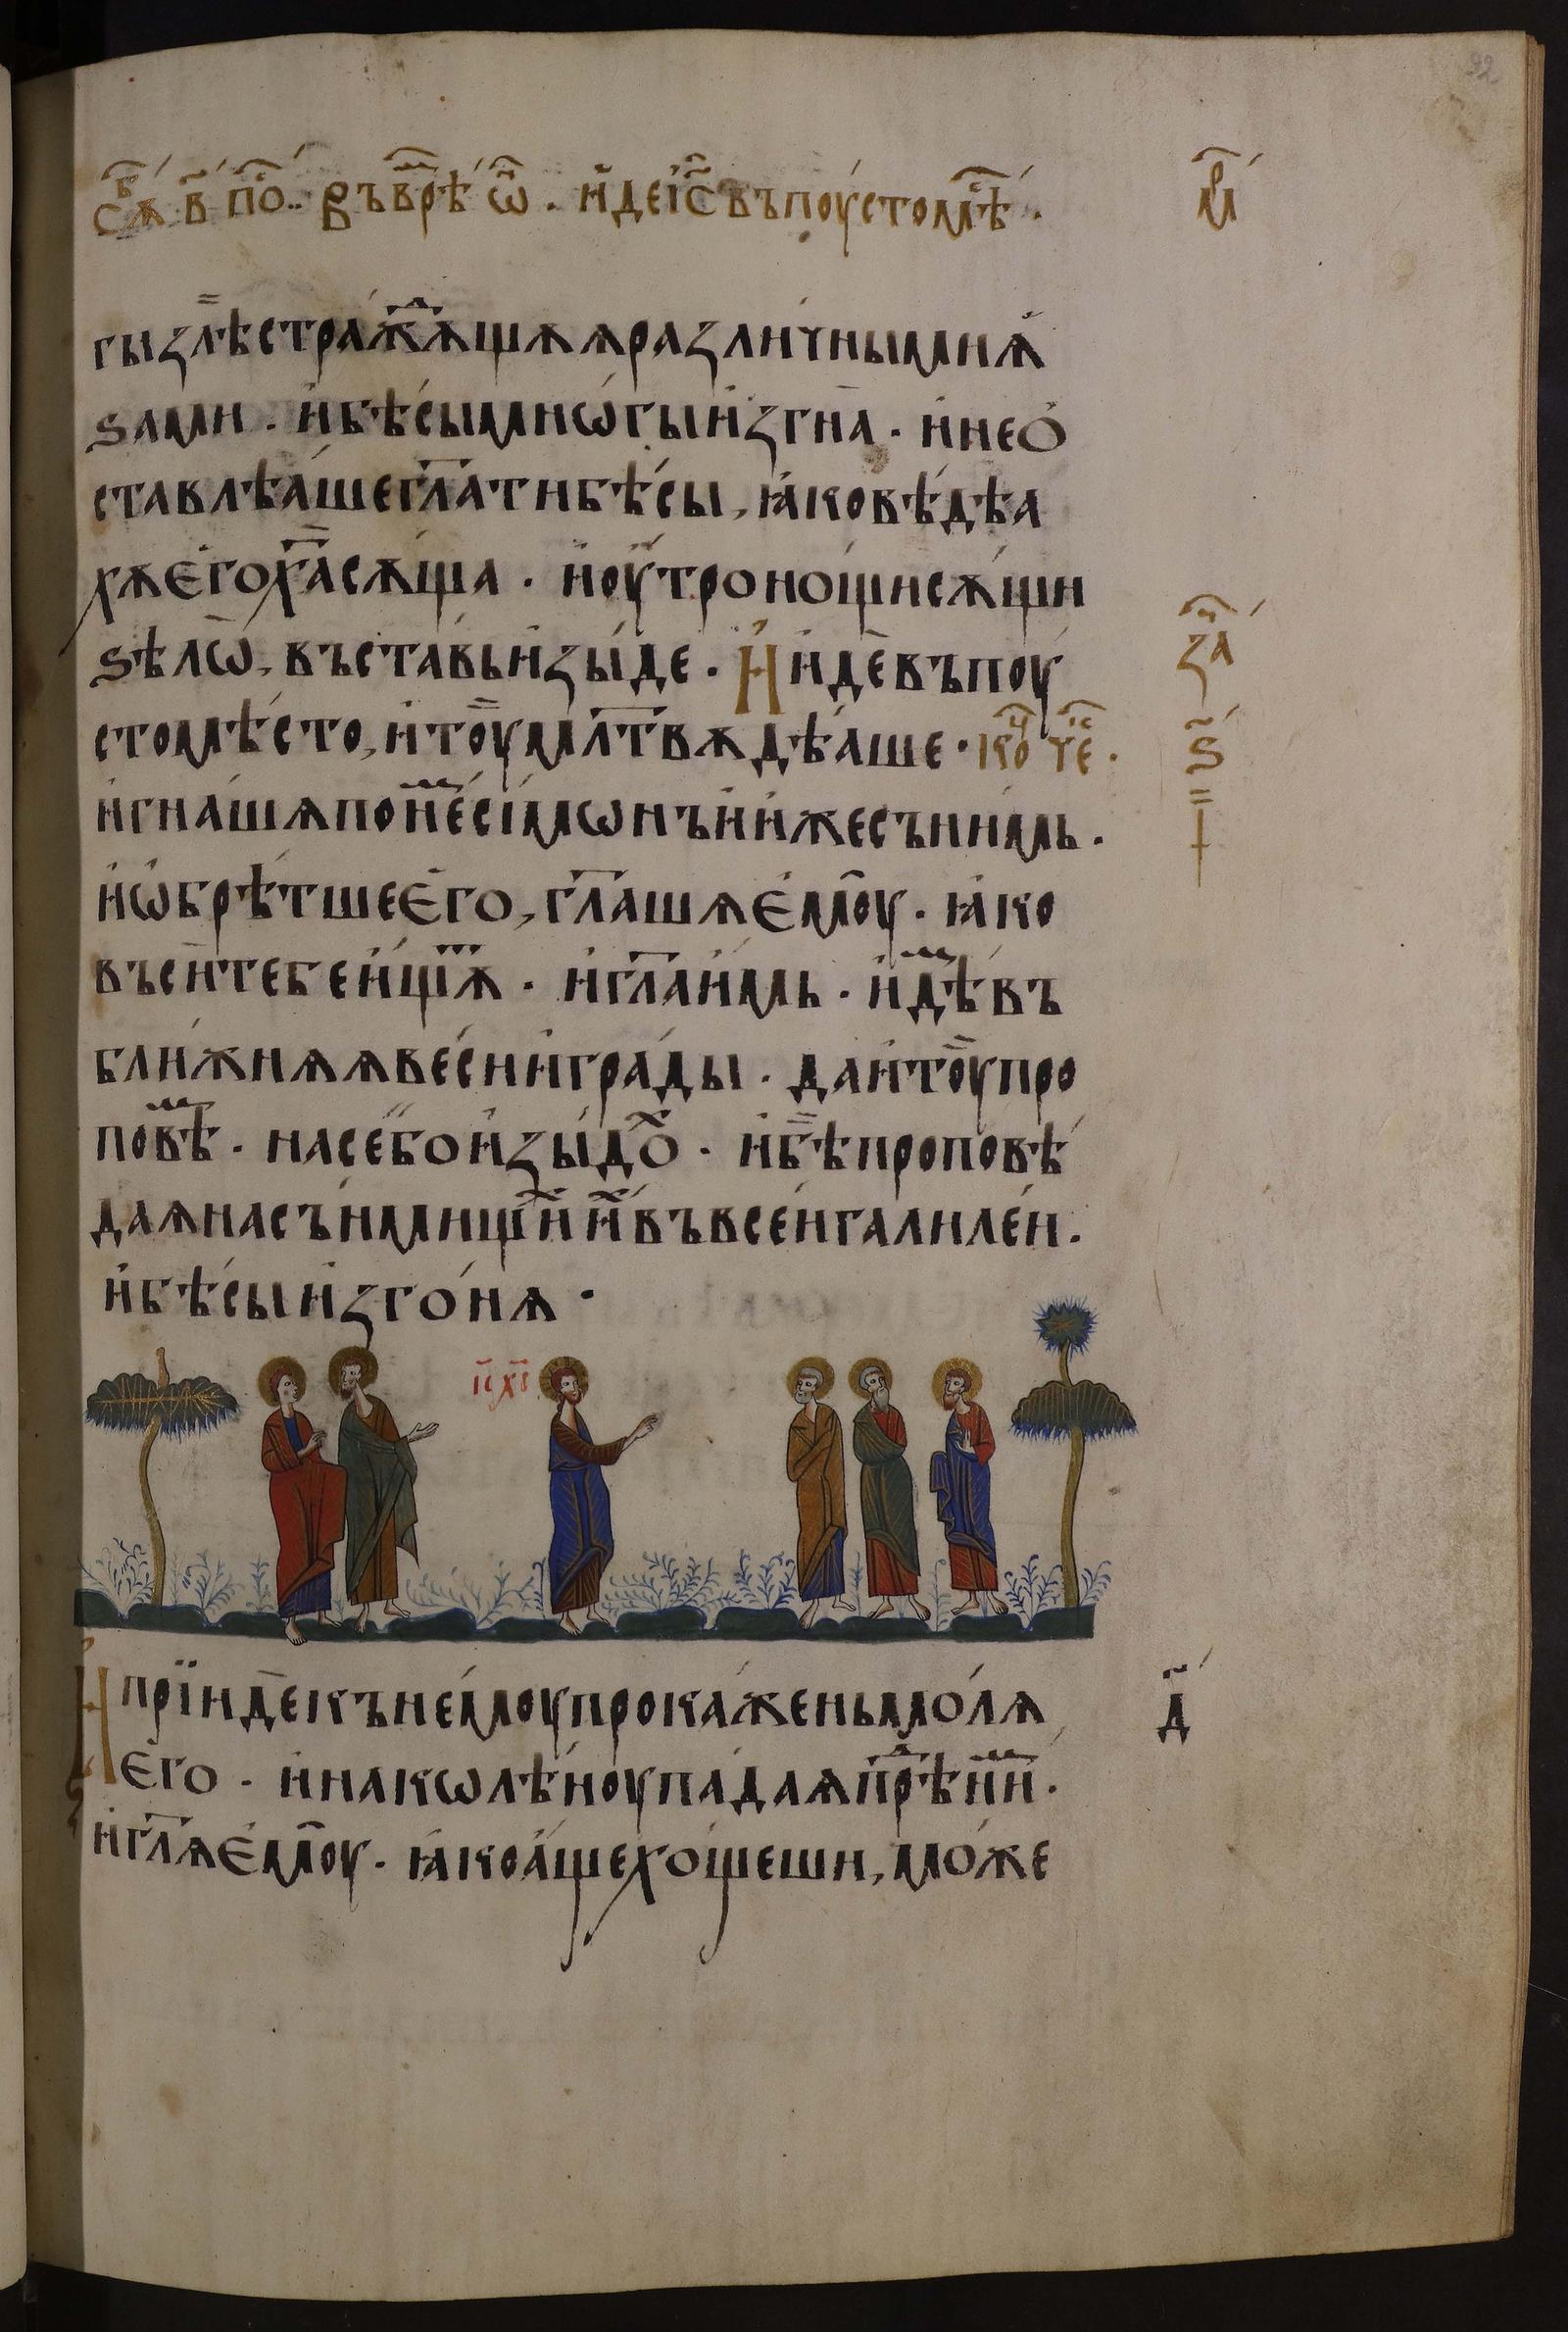 сѫⷠ҇ в҃ поⷭ҇. въ врѣⷨ҇ ѡⷩ҇. и҆де і҆с҃ въ поусто мѣⷭ҇.
мⷬ҇
гы злѣ страждⷤѫщѫѧ различнымиѧ
ѕами. и҆ бѣсы мнѡгы и҆згна. и҆ не о
ставлѣаше гл҃ати бѣсы, ꙗко вѣдѣа
хѫ є҆го х҃а сѫща. и҆ оутро нощи сѫщи
ѕѣлѡ, въставь и҆зыде. И҆ и҆де въ поу
за҇ⷱ
сто мѣсто, и҆ тоу млт҃вѫ дѣаше. коⷰ҇ че҇ⷭ.
ѕ҃
и҆ гнашѧ по не́ сі́мѡнъ и҆ и҆же съ нимь.
и҆ ѡ҆брѣтше є҆го, гл҃ашѧ є҆моу. ꙗко
въси тебе и҆щѫⷮ. и҆ гл҃а и҆мь. и҆дѣⷨ въ
ближнѧѧ веси и҆ грады. да и҆ тоу про
повѣⷨ. на се бо и҆зыдоⷯ. и҆ бѣ проповѣ
даѧ на съни́мищиⷯ иⷯ въ всеи галилеи.
и҆ бѣсы и҆згонѧ.
і҃с х҃с
И҆ прїиде къ немоу прокажень молѧ
д҃
є҆го. и҆ на кѡлѣноу падаѧ прⷣѣ ниⷨ.
и҆ гл҃ѧ є҆моу. ꙗко аще хощеши, може
92